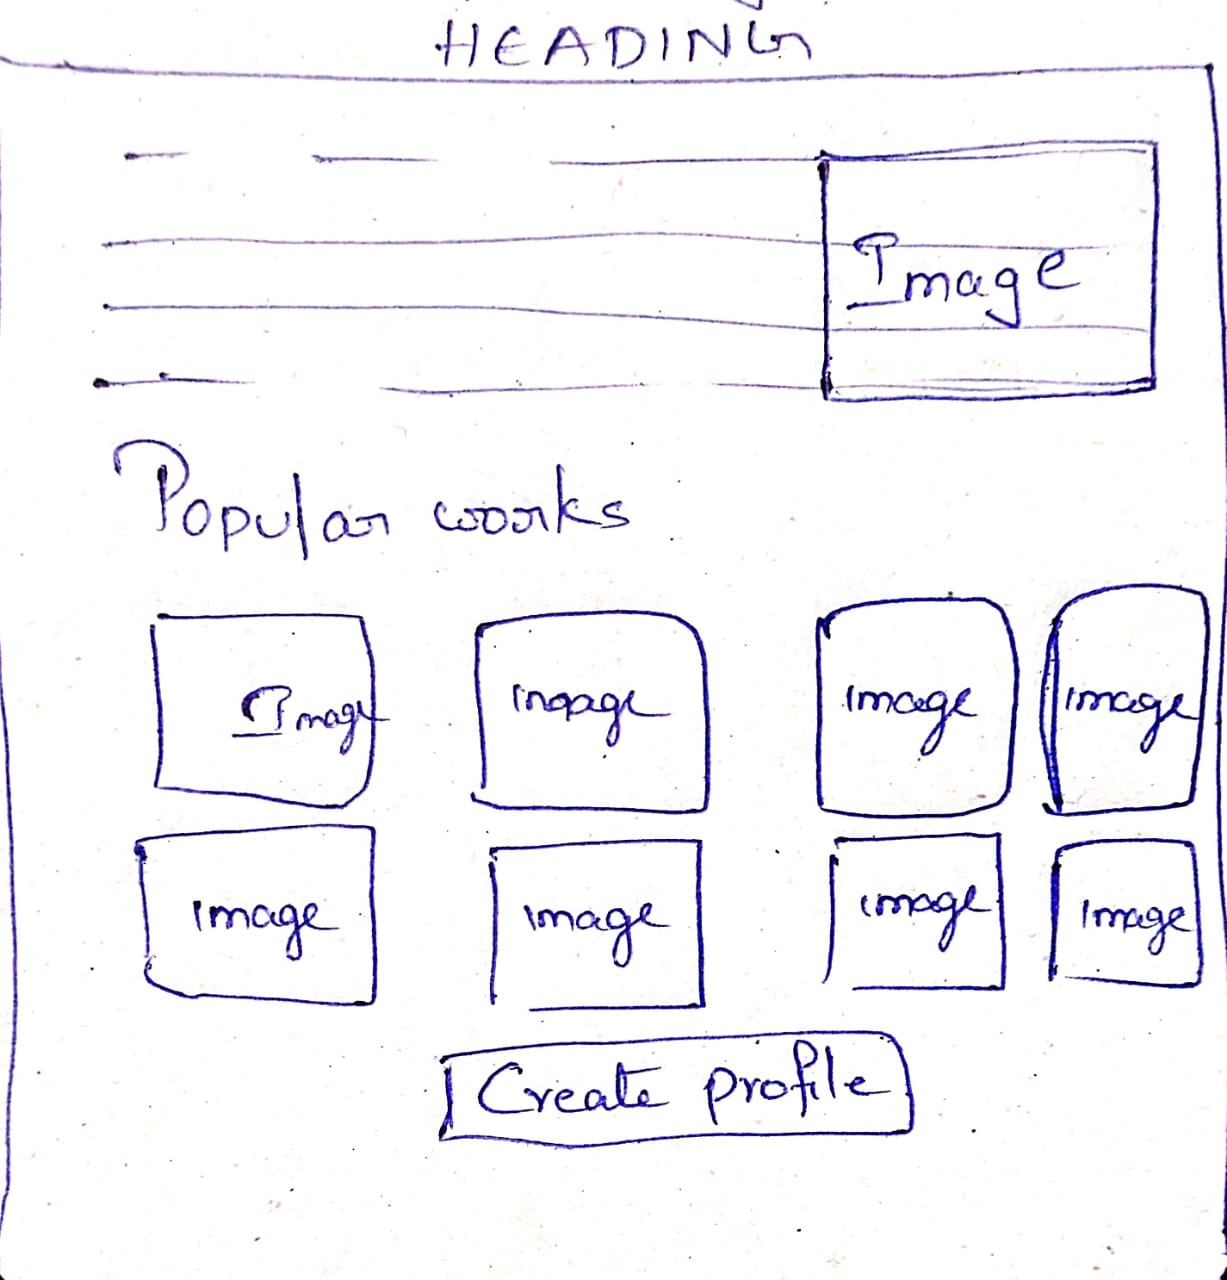 HEADING
Image
Popular works
Image Image Image Image
Image Image Image Image
Create profile